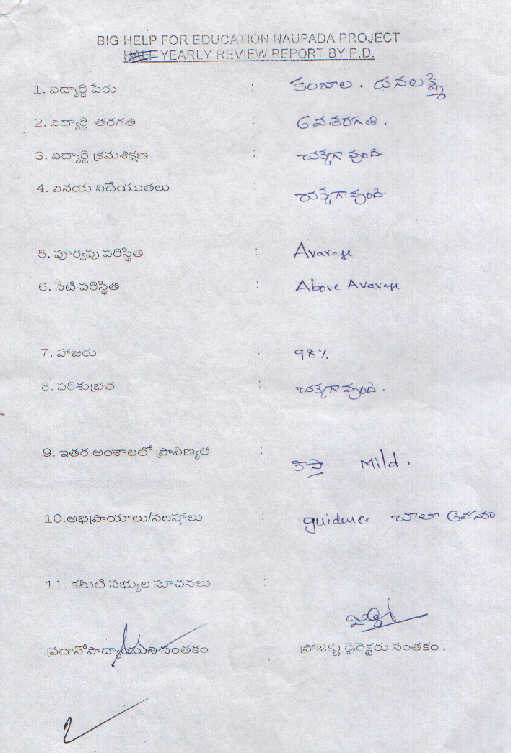 BIG HELP FOR EDUCATION NAUPADA PROJECT
HALF YEARLY REVIEW REPORT BY P.D.
1. విద్యార్థి పేరు : ధనలక్ష్మి
2. విద్యార్థి తరగతి : 6వ తరగతి.
3. విద్యార్థి క్రమశిక్షణ : చక్కగా వుంది
4. వినయ విధేయుతలు : చక్కగా వుంది
5. పూర్వపు పరిస్థితి : Avarage
6. నేటి పరిస్థితి : Above Avarage
7. హాజరు : 98%
8. పరిశుభ్రత : చక్కగా వుంది.
9. ఇతర అంశాలలో ప్రావీణ్యత : Mild.
10.అభిప్రాయాలు/సలహాలు : guidence చాలా
11. కమిటి సభ్యుల సూచనలు :
ప్రధానోపాధ్యాయుని సంతకం ప్రాజెక్టు డైరెక్టరు సంతకం.